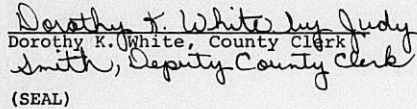 Dorothy K. White by Judy
Dorothy K. White, County Clerk
Smith, Deputy County Clerk
(SEAL)